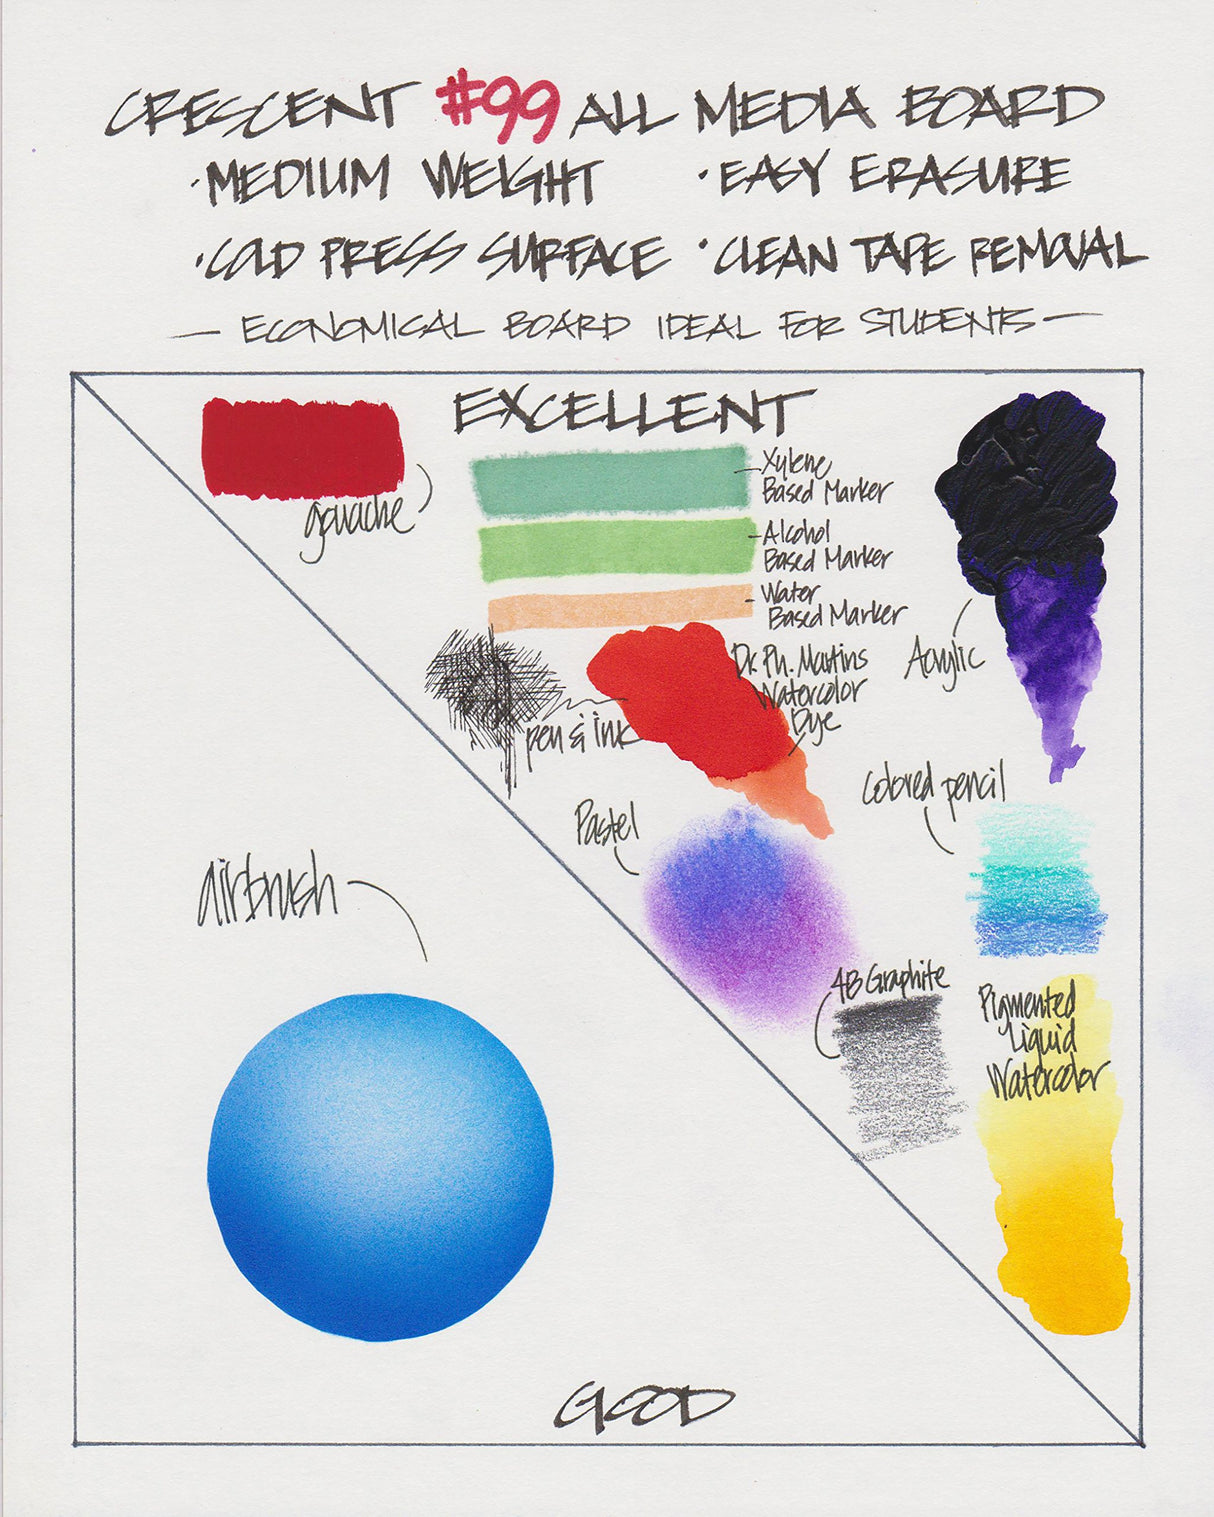 CRESCENT #99 ALL MEDIA BOARD
·MEDIUM WEIGHT ·EASY ERASURE
·COLD PRESS SURFACE ·CLEAN TAPE REMOVAL
— ECONOMICAL BOARD IDEAL FOR STUDENTS —
EXCELLENT
gouache
Xylene
Based Marker
Alcohol
Based Marker
Water
Based Marker
pen & ink
Dr. Ph. Martins
Watercolor
Dye
Acrylic
Pastel
Colored pencil
airbrush
4B Graphite
Pigmented
Liquid
Watercolor
GOOD